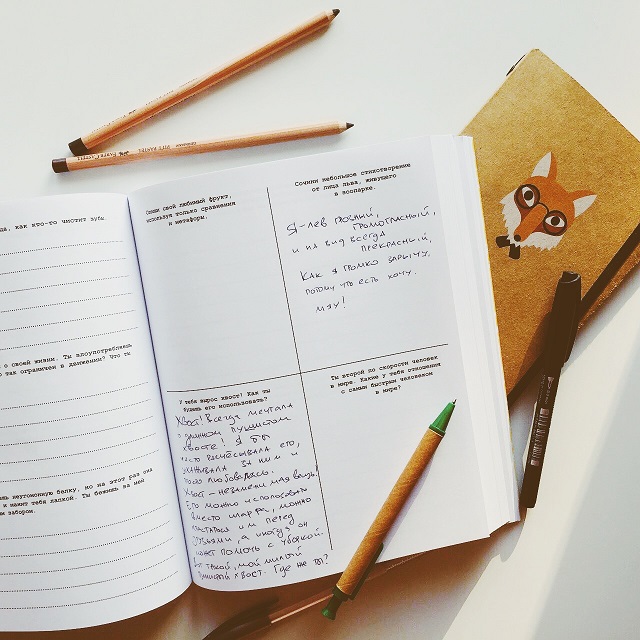 как кто-то чистит зубы.
о своей жизни. Ты злоупотребляешь
так ограничен в движении? Что ты
неугомонную белку, но на этот раз она
и какие тебя лапкой. Ты бежишь за ней
забором.
Опиши свой любимый фрукт,
используя только сравнения
и метафоры.
Сочини небольшое стихотворение
от лица льва, живущего
в зоопарке.
Я-лев грозный,
громогласный,
и на вид всегда
прекрасный,
Как я громко зарычу,
потому что есть хочу.
мяу!
У тебя вырос хвост! Как ты
будешь его использовать?
Хвост! Всегда мечтала
о длинном пушистом
хвосте! Я бы
часто расчёсывала его,
ухаживала за ним и
любовалась.
Хвост - незаменимая вещь!
Его можно использовать
вместо шарфа, можно
хвастаться им перед
друзьями, а иногда он
может помочь с уборкой.
Вот такой, мой милый
пушистый хвост. Где же ты?
Ты второй по скорости человек
в мире. Какие у тебя отношения
с самым быстрым человеком
в мире?
PITT PASTEL